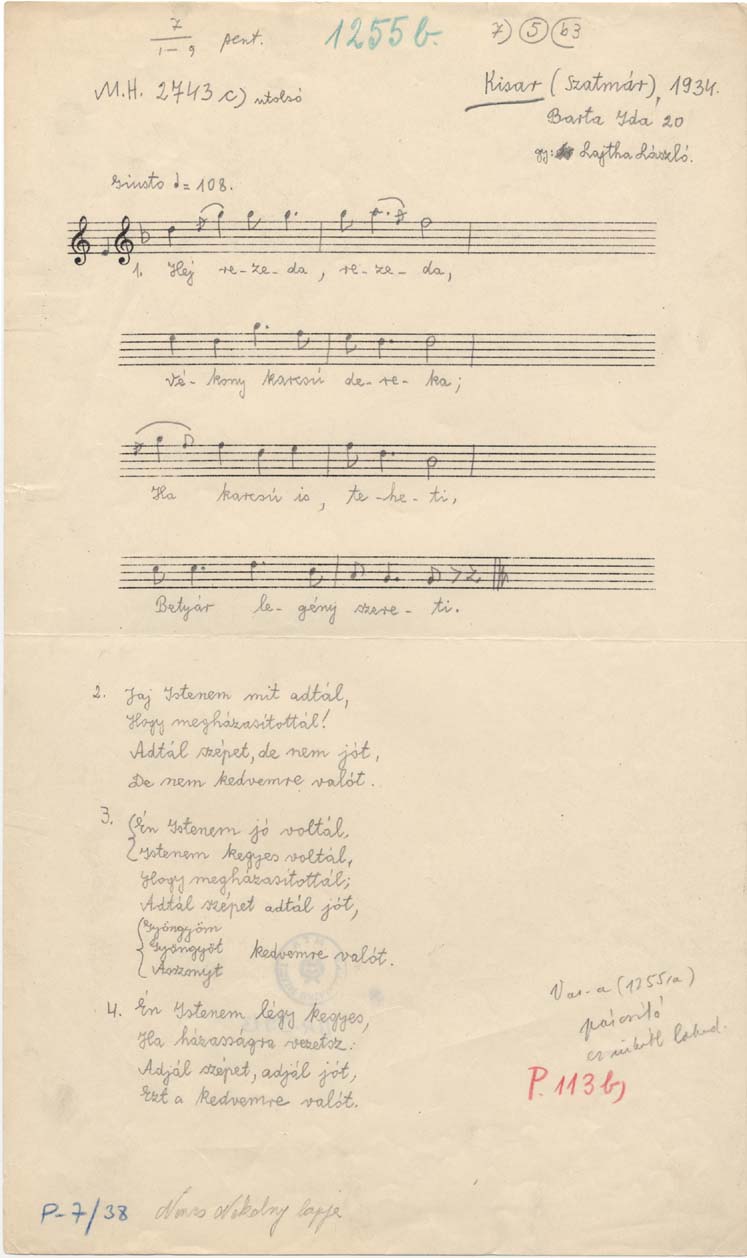 7
1-9 pent.
1255 b.
7) 5 b3
M.H. 2743 c) utolsó
Kisar (Szatmár), 1934.
Barta Ida 20
gy: Lajtha László.
Giusto = 108.
1. Hej re-ze-da, re-ze-da,
Vé-kony karcsú de-re-ka;
Ha karcsú is, te-he-ti,
Betyár le-gény szere-ti.
2. Jaj Istenem mit adtál,
Hogy megházasítottál!
Adtál szépet, de nem jót,
De nem kedvemre valót.
3. Én Istenem jó voltál,
Istenem kegyes voltál,
Hogy megházasítottál;
Adtál szépet adtál jót,
Gyöngyöm
Gyöngyöt kedvemre valót.
Asszonyt
4. Én Istenem légy kegyes,
Ha házasságra vezetsz:
Adjál szépet, adjál jót,
Ezt a kedvemre valót.
Var-a (1255/a)
P. 113 b)
P-7/38 lapja